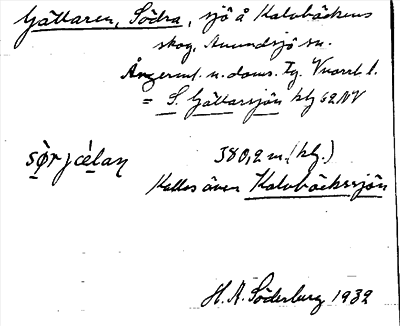 Gättaren, Södra, sjö å Kalvbäckens
skog, Anundsjö sn.
Ångerml. n. doms. Tg. Vnorrl. l.
= S. Gättarsjön klg 62 NV
sør jœ́lan 380,2 m. (klg.)
Kallas även Kalvbäckssjön
H. A. Söderberg 1932